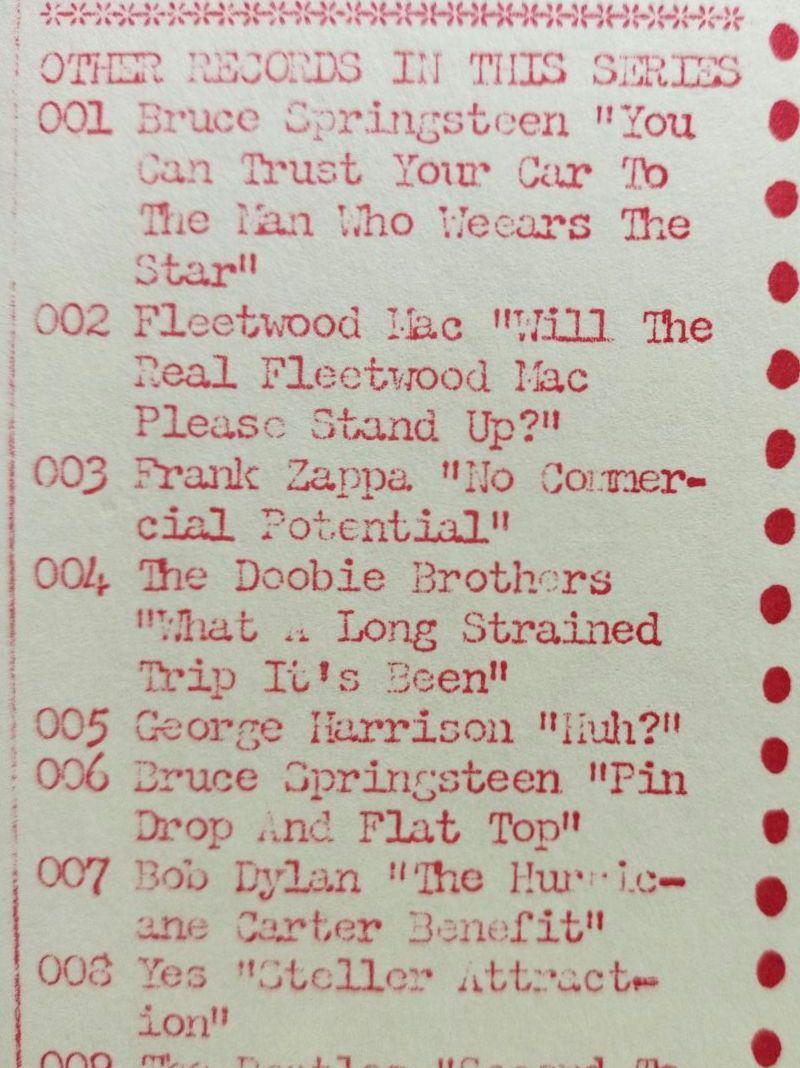 OTHER RECORDS IN THIS SERIES
001 Bruce Springsteen "You
Can Trust Your Car To
The Man Who Weears The
Star"
002 Fleetwood Mac "Will The
Real Fleetwood Mac
Please Stand Up?"
003 Frank Zappa "No Commer-
cial Potential"
004 The Doobie Brothers
"What A Long Strained
Trip It's Been"
005 George Harrison "Huh?"
006 Bruce Springsteen "Pin
Drop And Flat Top"
007 Bob Dylan "The Hurric-
ane Carter Benefit"
008 Yes "Steller Attract-
ion"
009 The Beatles "Second To